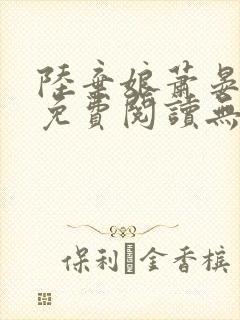 陸棄娘蕭晏
免費閱讀無
保利 金香槟